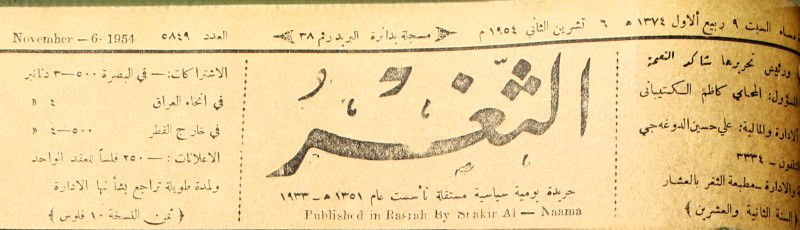 مساء السبت ٩ ربيع الاول ١٣٧٤ هـ ٦ تشرين الثاني ١٩٥٤ م
مسجلة بدائرة البريد رقم ٣٨
العدد ٥٨٤٩
November - 6 - 1954
ورئيس تحريرها شاكر النعمة
المسؤول: المحامي كاظم الكتيباني
الادارة والمالية: علي حسين الدوغه جي
التلفون - ٣٣٣٤
والادارة - مطبعة الثغر بالعشار
﴿ السنة الثانية والعشرين ﴾
الثغر
جريدة يومية سياسية مستقلة تأسست عام ١٣٥١ هـ - ١٩٣٣
Published in Basrah By Shakir Al — Naama
الاشتراكات: — في البصرة ٥٠٠-٣ دنانير
في انحاء العراق ٤ »
في خارج القطر ٥٠٠-٤ »
الاعلانات: — ٢٥٠ فلساً للعقد الواحد
ولمدة طويلة تراجع بشأنها الادارة
﴿ ثمن النسخة ١٠ فلوس ﴾